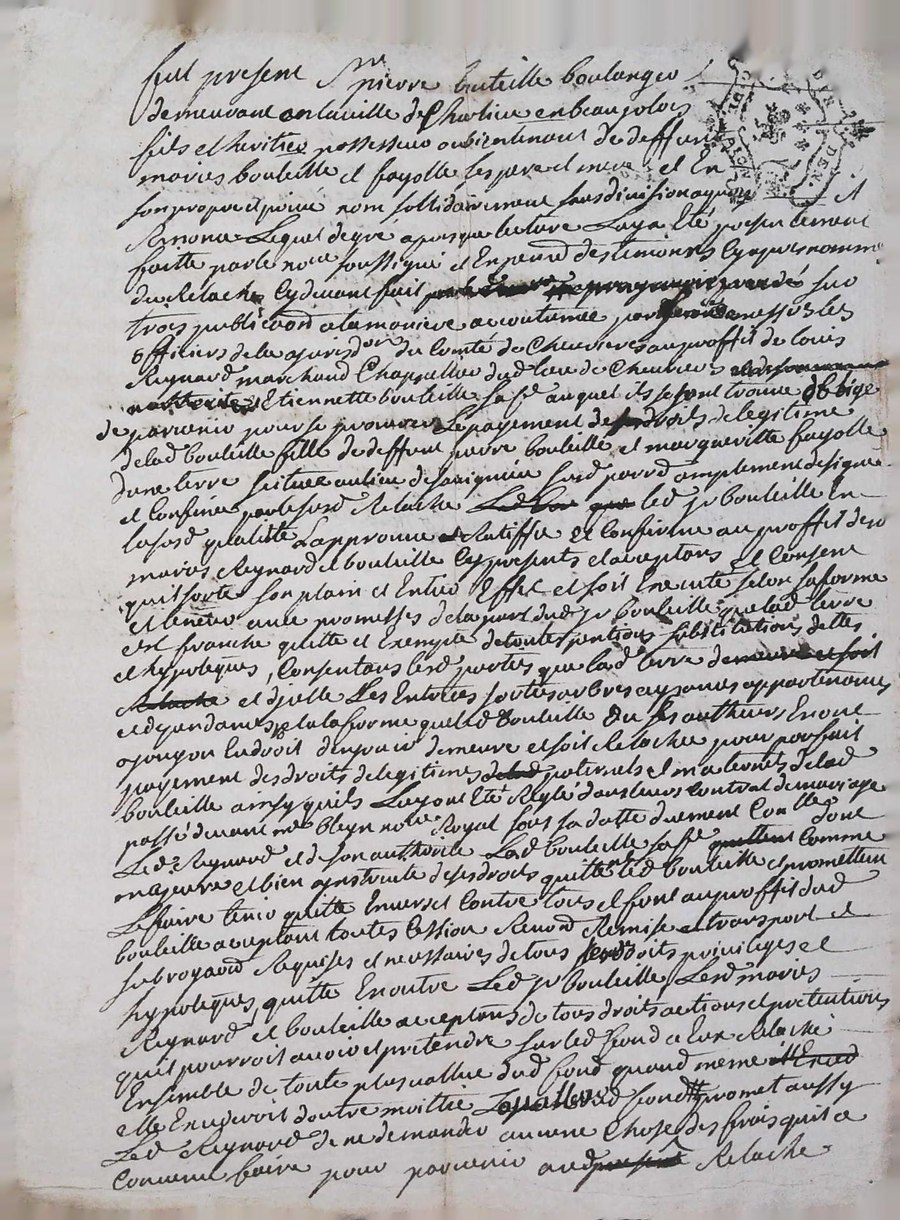 fut present Sr pierre bouteille boulanger
demeurant en la ville de Charlieu en beaujolois
fils et heritier possesseur ou bientenant de deffunts
mariés bouteille et fayolle ses pere et mere et En
son propre et privé nom sollidairement sans division ayant
Lequel de gré apres que lecture Luy a Eté presentement
faitte par le nore soussigné et En presence des temoins Cy apres nommés
du Relache Cy devant fait sur
trois publica͠on a la maniere accoutumée par messrs les
officiers de la jurisdon du Comté de Chevrieres au proffit de Louis
Reynard marchand Chappellier dud lieu de Chevrieres
Etiennette bouteille sa fe auquel ils se sont trouvé obligé
de parvenir pour se procurer Le payement des droits de legitime
de lad bouteille fille de deffunt pierre bouteille et margueritte fayolle
dune terre scituée au lieu de susd parrd amplement designée
et Confinée par le susd Relache led sr bouteille En
la susd qualité L'approuve Ratiffie Et Confirme au proffit desd
mariés Reynard et bouteille Cy presents et acceptans Et Consent
quil sorte son plain et Entier Effet et soit Executé selon sa forme
et teneur avec promesses de la part dud sr bouteille que lad terre
est franche quitte et Exempte de toutes pentions substitutions dettes
et hypoteques, Consentans lesd parties que lad terre demeure et soit
Relaché et d'jcelle Les Entrées sorties arbres aysances appartenances
et dependances et a la forme que led Bouteille Ou ses autheurs En ont
jouy ou En doit demeure et soit Relachée pour parfait
payement des droits de legitimes paternels et maternels de lad
bouteille ainsy quils L'ayont Eté Reglé dans leurs Contrat de mariage
passé devant me bleyn nore Royal sous sa datte duement Conllé donc
Led Reynard et de son authorité Lad bouteille sa fe Comme
majeure et bien jnstruite de ses droits quittent led bouteille et promettent
Le faire tenir quitte Envers et Contre tous et font au proffit dud
bouteille acceptant toutes Cession Remise et transport et
subroga͠on Requises et necessaires de tous droits privileges et
hypoteques, quitte En outre Led sr bouteille Lesd mariés
Reynard et bouteille acceptans de tous droits actions et pretentions
quil pourroit avoir et pretendre sur led fond a Eux Relaché
Ensemble de toute plus vallue dud fond quand meme
elle Excederoit d'outre moitié fond promet aussy
Led Reynard de ne demander aucune Chose des frais quil a
Convenu faire pour parvenir aud Relache